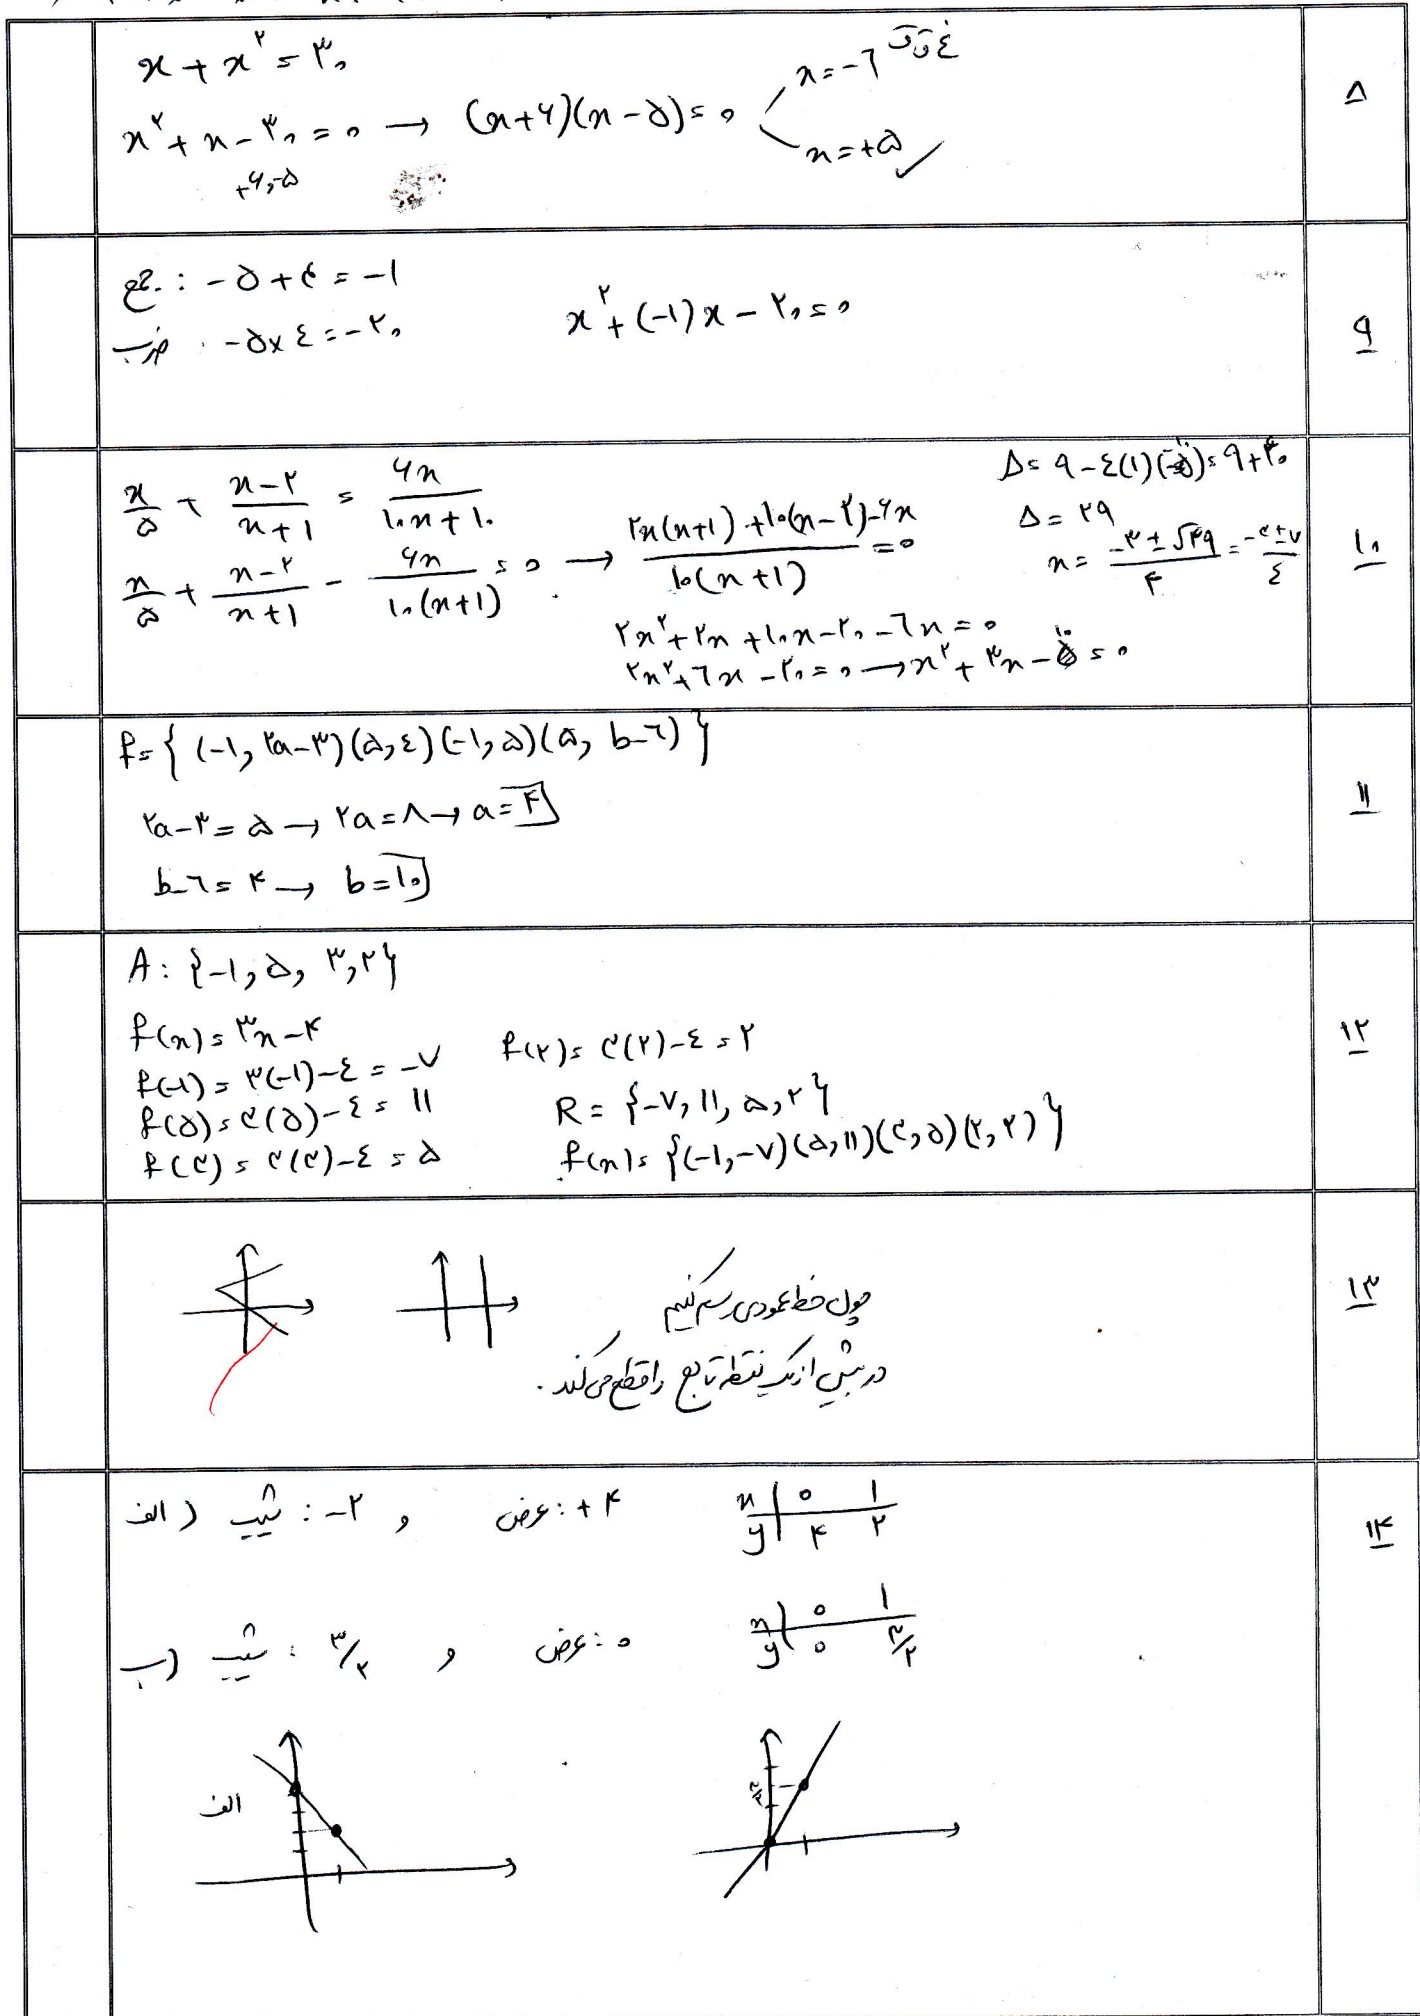 ۸
x + x^۲ = ۳۰
x^۲ + x - ۳۰ = ۰ → (x+۶)(x-۵) = ۰
x = -۶ غ ق ق
x = +۵ ✓
+۶,-۵
۹
جمع : -۵+۴ = -۱
ضرب : -۵×۴ = -۲۰
x^۲ + (-۱)x - ۲۰ = ۰
۱۰
x/۵ + (x-۲)/(x+۱) = ۶x/(۱۰x+۱۰)
x/۵ + (x-۲)/(x+۱) - ۶x/(۱۰(x+۱)) = ۰ → (۲x(x+۱)+۱۰(x-۲)-۶x)/(۱۰(x+۱)) = ۰
۲x^۲+۲x+۱۰x-۲۰-۶x = ۰
۲x^۲+۶x-۲۰ = ۰ → x^۲+۳x-۱۰ = ۰
Δ = ۹-۴(۱)(-۱۰) = ۹+۴۰
Δ = ۴۹
x = (-۳±√۴۹)/۴ = (-۳±۷)/۴
۱۱
f = { (-۱, ۲a-۳)(۵,۴)(-۱,۵)(۵, b-۶) }
۲a-۳ = ۵ → ۲a = ۸ → a = ۴
b-۶ = ۴ → b = ۱۰
۱۲
A : {-۱, ۵, ۳, ۲}
f(x) = ۳x-۴
f(-۱) = ۳(-۱)-۴ = -۷
f(۵) = ۳(۵)-۴ = ۱۱
f(۳) = ۳(۳)-۴ = ۵
f(۲) = ۳(۲)-۴ = ۲
R = {-۷, ۱۱, ۵, ۲}
f(x) = {(-۱,-۷)(۵,۱۱)(۳,۵)(۲,۲)}
۱۳
چون خط عمودی رسم کنیم
در بیش از یک نقطه تابع را قطع می‌کند.
۱۴
الف) شیب : -۲ و عرض : +۴
x | ۰ ۱
y | ۴ ۲
ب) شیب : ۳/۲ و عرض : ۰
x | ۰ ۱
y | ۰ ۳/۲
الف
۳/۲